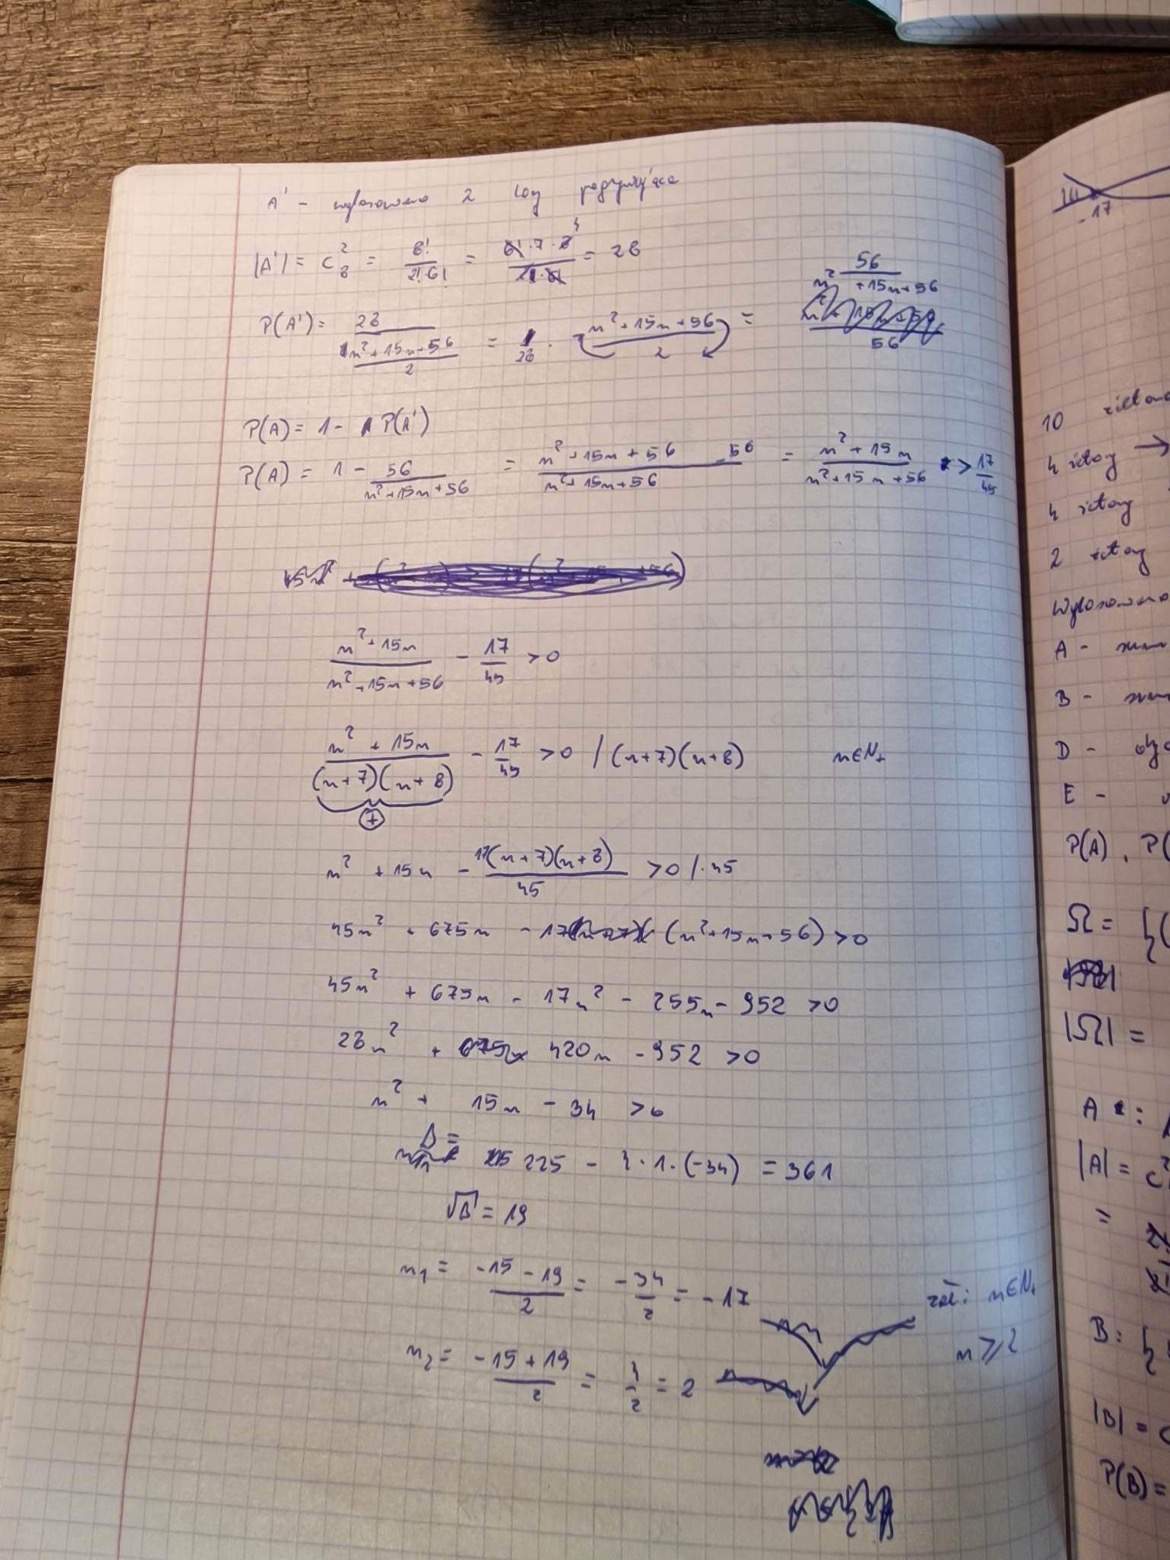 A' - wylosowano 2 losy przegrywające
|A'| = C₈² = 8!/(2!·6!) = (6!·7·8)/(2!·6!) = 28
P(A') = 28/((n²+15n+56)/2) = 1/28 · (n²+15n+56)/2 = 56/(n²+15n+56)
56
P(A) = 1 - P(A')
P(A) = 1 - 56/(n²+15n+56) = (n²+15n+56-56)/(n²+15n+56) = (n²+15n)/(n²+15n+56) > 17/45
(n²+15n)/(n²+15n+56) - 17/45 > 0
(n²+15n)/((n+7)(n+8)) - 17/45 > 0 /(n+7)(n+8) n∈N₊
+
n² + 15n - 17(n+7)(n+8)/45 > 0 /·45
45n² + 675n - 17(n²+15n+56) > 0
45n² + 675n - 17n² - 255n - 952 > 0
28n² + 420n - 952 > 0
n² + 15n - 34 > 0
Δ = 225 - 4·1·(-34) = 361
√Δ = 19
n₁ = (-15-19)/2 = -34/2 = -17
zał: n∈N₊
n₂ = (-15+19)/2 = 4/2 = 2
n ⩾ 2
-17
10
4
4
2
Wylosowano
A -
B -
D -
E -
P(A), P(
Ω = {(
|Ω| =
A :
|A| = C
=
B: {
|B| =
P(B) =